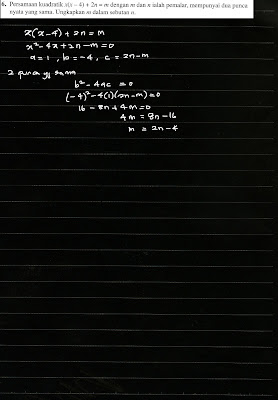 6. Persamaan kuadratik x(x – 4) + 2n = m dengan m dan n ialah pemalar, mempunyai dua punca
nyata yang sama. Ungkapkan m dalam sebutan n.
x(x-4) + 2n = m
x²- 4x + 2n - m = 0
a = 1 , b = -4 , c = 2n - m
2 punca yg sama
b² - 4ac = 0
(-4)² - 4(1)(2n-m) = 0
16 - 8n + 4m = 0
4m = 8n - 16
m = 2n - 4